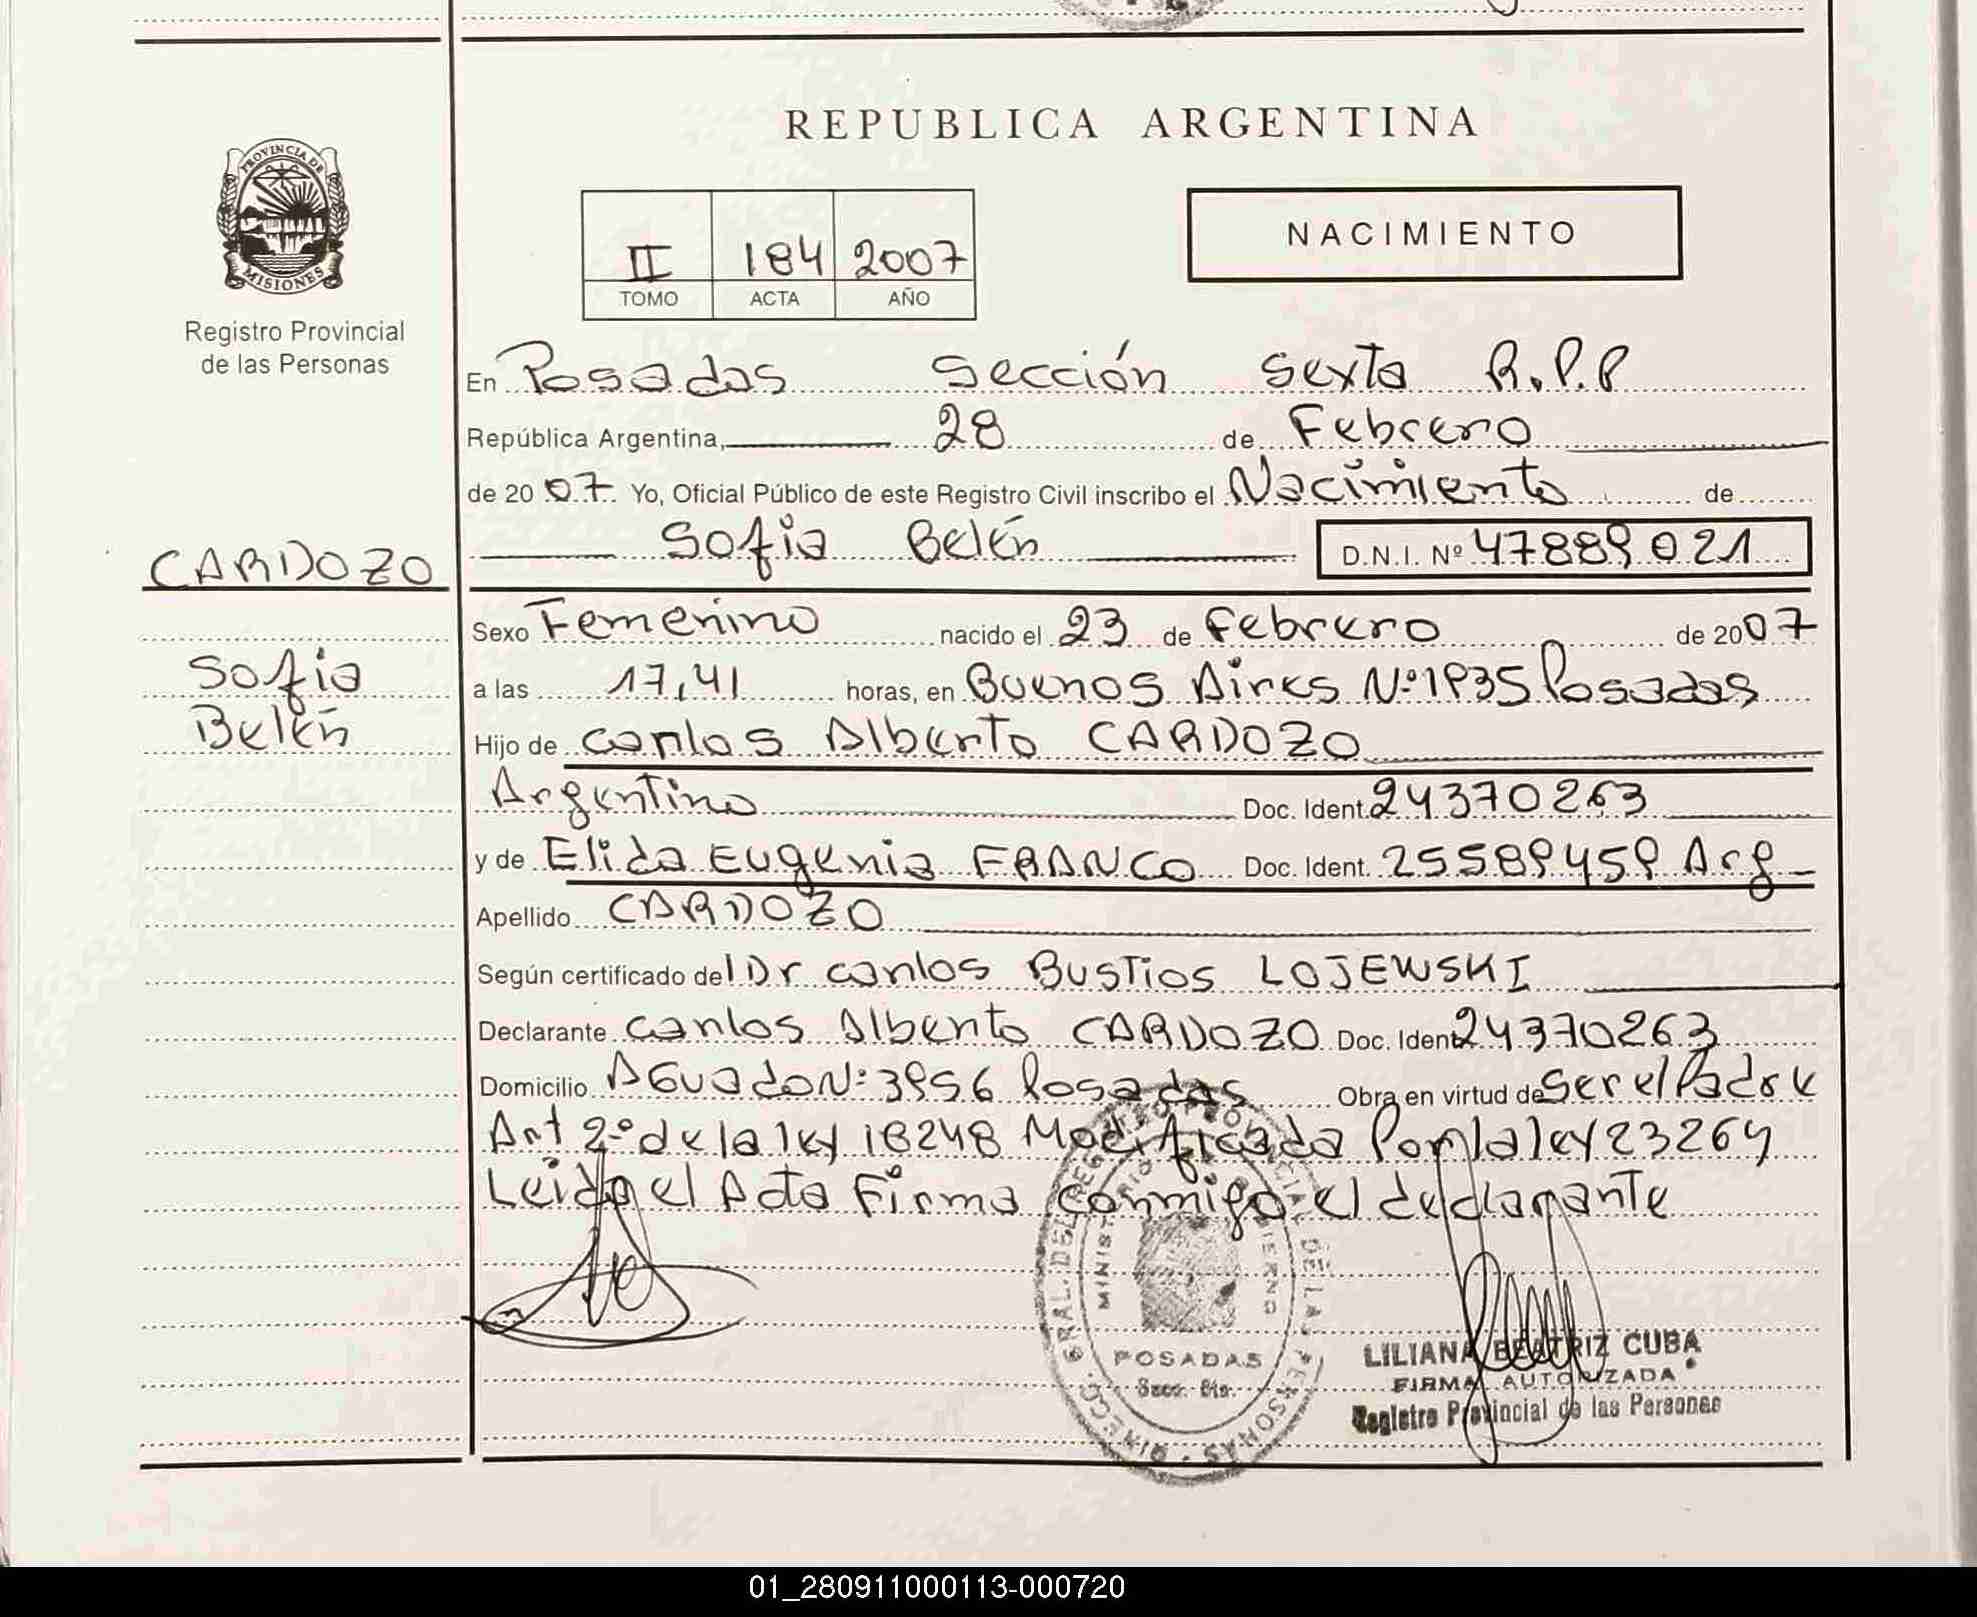 REPUBLICA ARGENTINA
PROVINCIA DE
MISIONES
Registro Provincial
de las Personas
II 184 2007
TOMO ACTA AÑO
NACIMIENTO
En Posadas Sección Sexta R.P.P
República Argentina, 28 de Febrero
de 2007 Yo, Oficial Público de este Registro Civil inscribo el Nacimiento de
Sofia Belén D.N.I. Nº 47889021
CARDOZO
Sofia
Belén
Sexo Femenino nacido el 23 de Febrero de 2007
a las 17,41 horas, en Buenos Aires Nº 1935 Posadas
Hijo de Carlos Alberto CARDOZO
Argentino Doc. Ident. 24370263
y de Elida Eugenia FRANCO Doc. Ident. 25589459 Arg
Apellido CARDOZO
Según certificado del Dr Carlos Bustios LOJEWSKI
Declarante Carlos Alberto CARDOZO Doc. Ident 24370263
Domicilio Aguado Nº 3956 Posadas Obra en virtud de Ser el Padre
Art 2º de la ley 18248 Modificada Por la ley 23264
Leida el Acta Firma conmigo el declarante
POSADAS
LILIANA BEATRIZ CUBA
FIRMA AUTORIZADA
Registro Provincial de las Personas
01_280911000113-000720